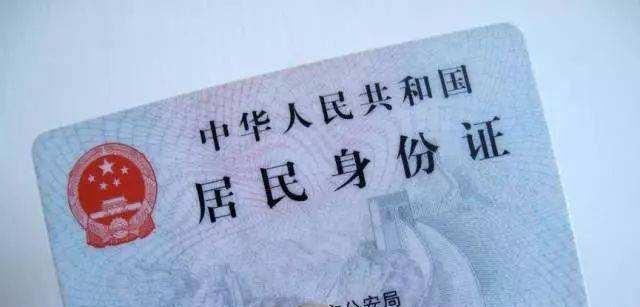 中华人民共和国
居民身份证
公安局